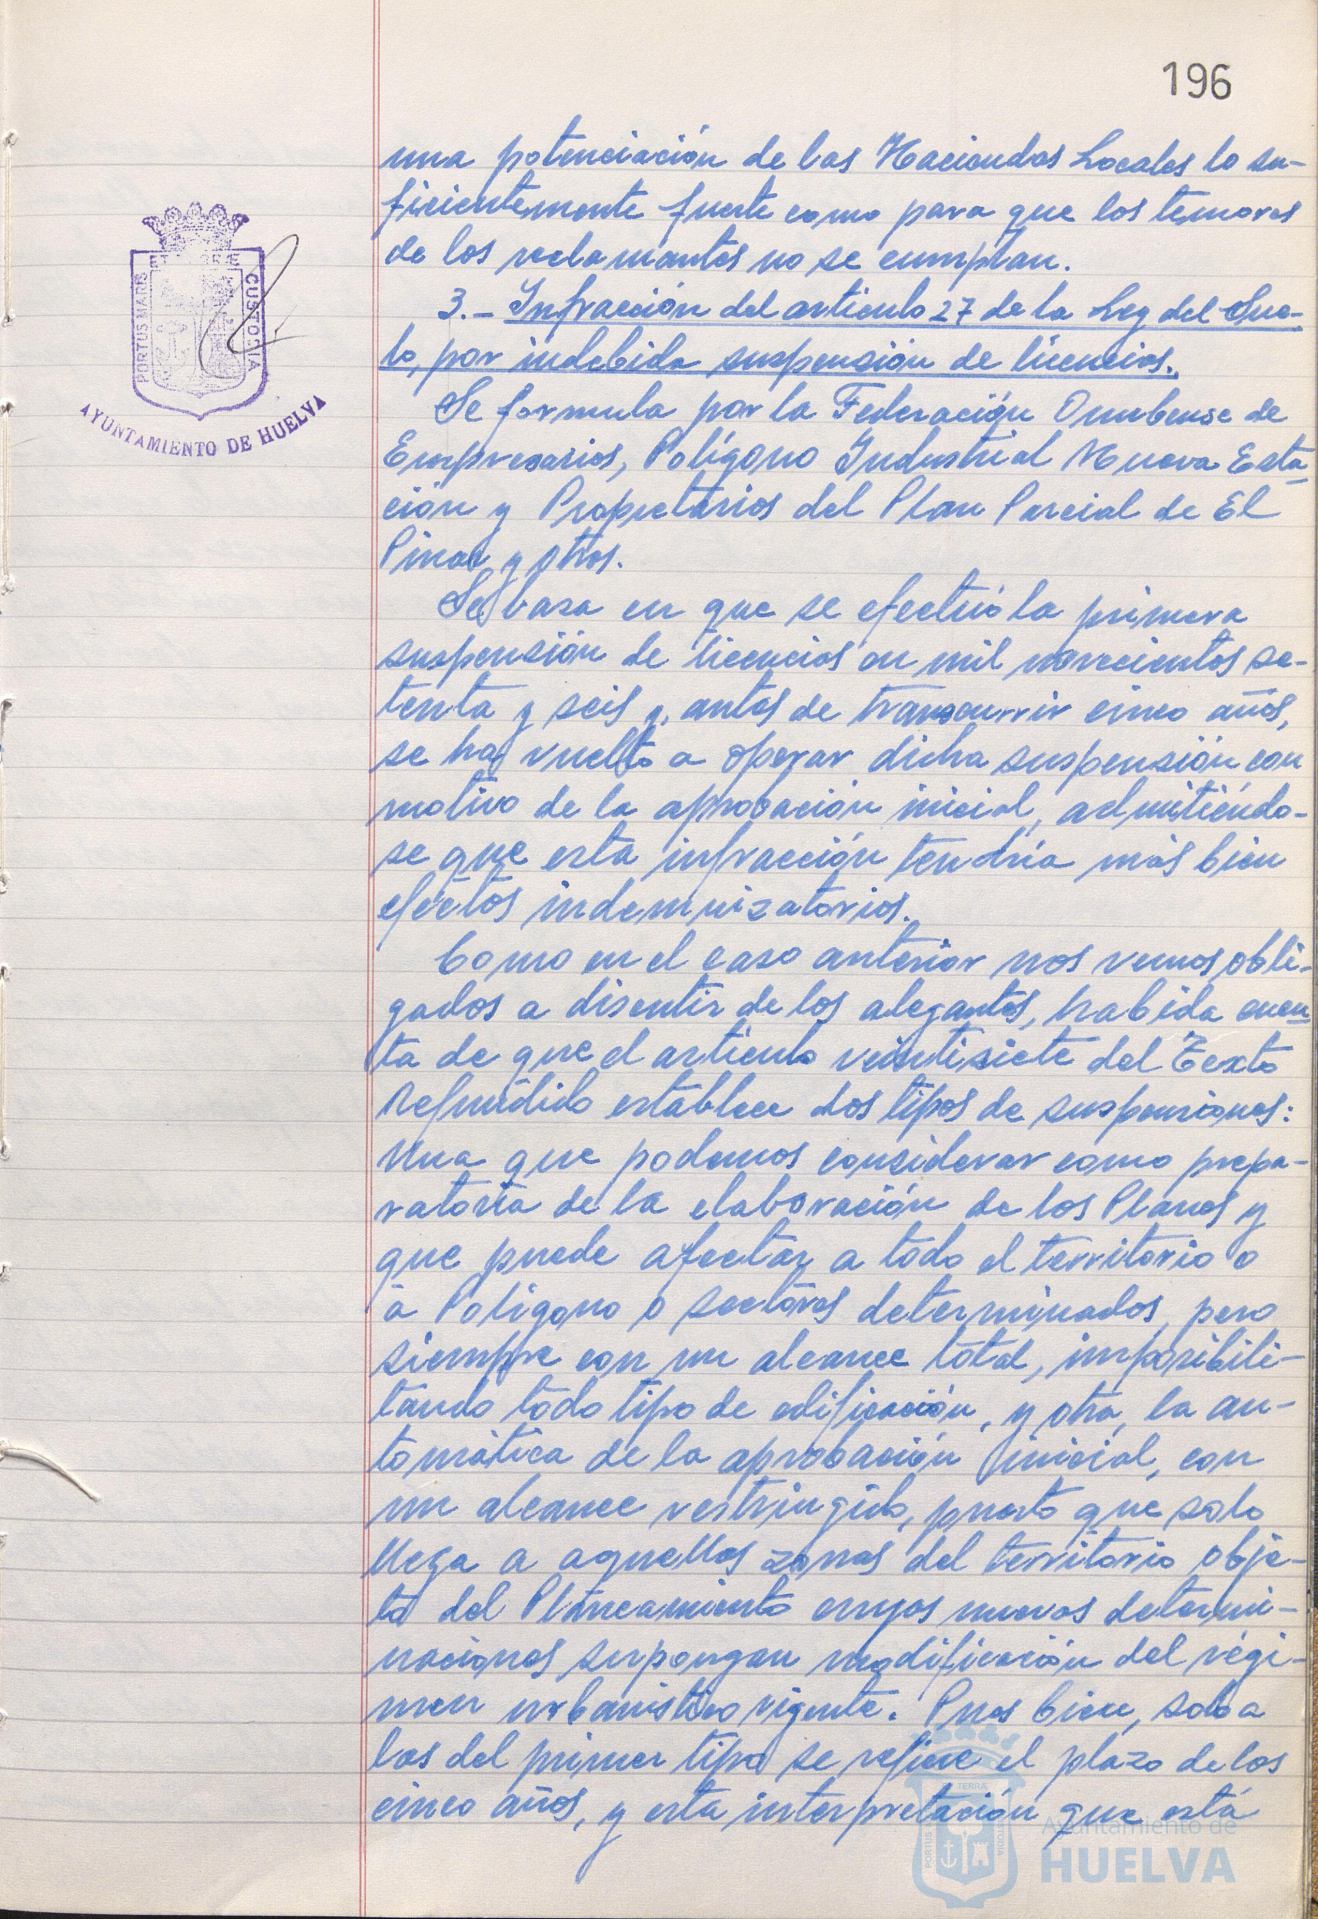 196
una potenciación de las Haciendas Locales lo su-
ficientemente fuerte como para que los temores
de los reclamantes no se cumplan.
3.- Infracción del artículo 27 de la Ley del Sue-
lo, por indebida suspensión de licencias.
Se formula por la Federación Onubense de
Empresarios, Polígono Industrial Nueva Esta-
ción y Propietarios del Plan Parcial de El
Pinar y otros.
Se basa en que se efectuó la primera
suspensión de licencias en mil novecientos se-
tenta y seis y, antes de transcurrir cinco años,
se ha vuelto a operar dicha suspensión con
motivo de la aprobación inicial, admitiéndo-
se que esta infracción tendría más bien
efectos indemnizatorios.
Como en el caso anterior nos vemos obli-
gados a disentir de los alegantes, habida cuen-
ta de que el artículo veintisiete del Texto
Refundido establece dos tipos de suspensiones:
Una que podemos considerar como prepa-
ratoria de la elaboración de los Planes y
que puede afectar a todo el territorio o
a Polígono o sectores determinados, pero
siempre con un alcance total, imposibili-
tando todo tipo de edificación, y otra, la au-
tomática de la aprobación inicial, con
un alcance restringido, puesto que solo
llega a aquellas zonas del territorio obje-
to del Planeamiento cuyas nuevas determi-
naciones supongan modificación del régi-
men urbanístico vigente. Pues bien, solo a
las del primer tipo se refiere el plazo de los
cinco años, y esta interpretación que está
PORTUS MARIS
ET TERRAE
CUSTODIA
AYUNTAMIENTO DE HUELVA
Ayuntamiento de
HUELVA